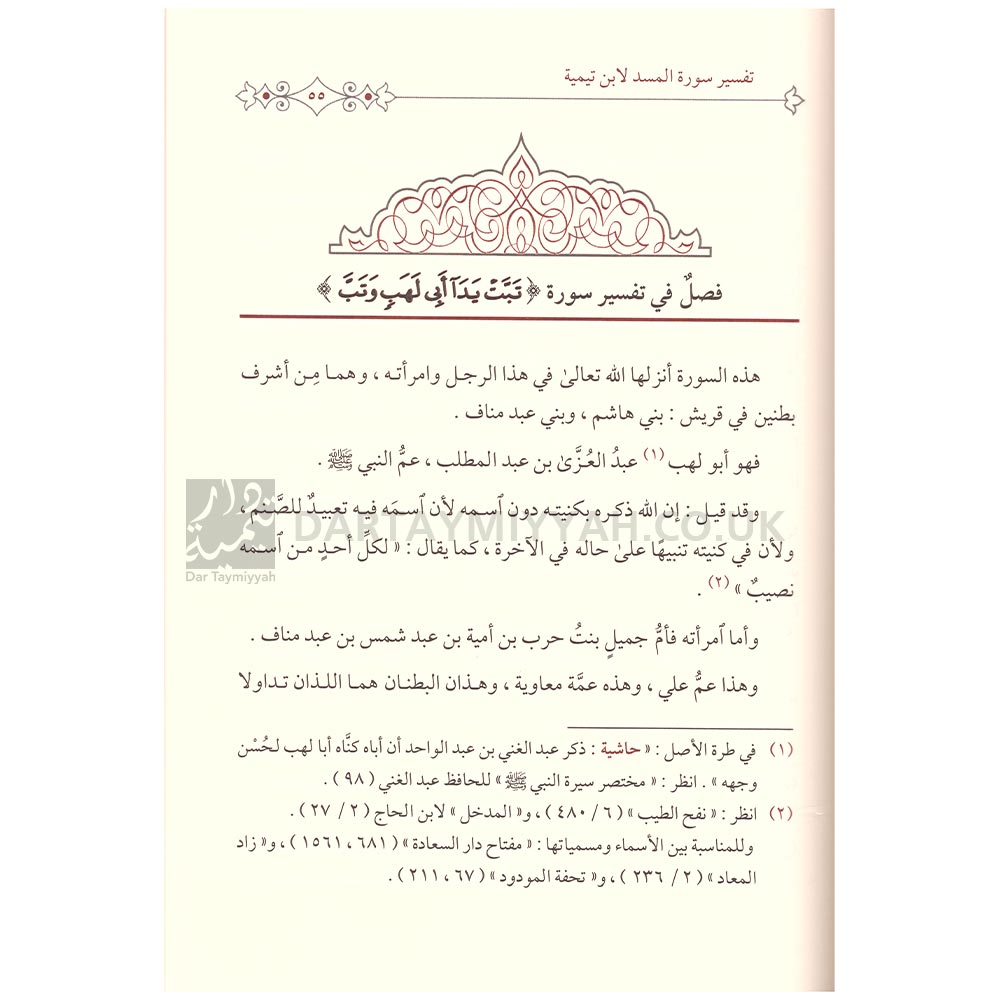 تفسير سورة المسد لابن تيمية
٥٥
فصلٌ في تفسير سورة ﴿ تَبَّتْ يَدَآ أَبِى لَهَبٍ وَتَبَّ ﴾
هذه السورة أنزلها الله تعالىٰ في هذا الرجل وامرأته ، وهما مِن أشرف
بطنين في قريش : بني هاشم ، وبني عبد مناف .
فهو أبو لهب (١) عبدُ العُزَّىٰ بن عبد المطلب ، عمُّ النبي ﷺ .
وقد قيل : إن الله ذكره بكنيته دون ٱسمه لأن ٱسمَه فيه تعبيدٌ للصَّنم ،
ولأن في كنيته تنبيهًا علىٰ حاله في الآخرة ، كما يقال : « لكلِّ أحدٍ من ٱسمه
نصيبٌ » (٢) .
وأما ٱمرأته فأمُّ جميلٍ بنتُ حرب بن أمية بن عبد شمس بن عبد مناف .
وهذا عمُّ علي ، وهذه عمَّة معاوية ، وهذان البطنان هما اللذان تداولا
(١) في طرة الأصل : « حاشية : ذكر عبد الغني بن عبد الواحد أن أباه كنَّاه أبا لهب لحُسْن
وجهه » . انظر : « مختصر سيرة النبي ﷺ » للحافظ عبد الغني ( ٩٨ ) .
(٢) انظر : « نفح الطيب » ( ٦ / ٤٨٠ ) ، و« المدخل » لابن الحاج ( ٢ / ٢٧ ) .
وللمناسبة بين الأسماء ومسمياتها : « مفتاح دار السعادة » ( ٦٨١ ، ١٥٦١ ) ، و« زاد
المعاد » ( ٢ / ٢٣٦ ) ، و« تحفة المودود » ( ٦٧ ، ٢١١ ) .
دار تيمية
Dar Taymiyyah
DARTAYMIYYAH.CO.UK